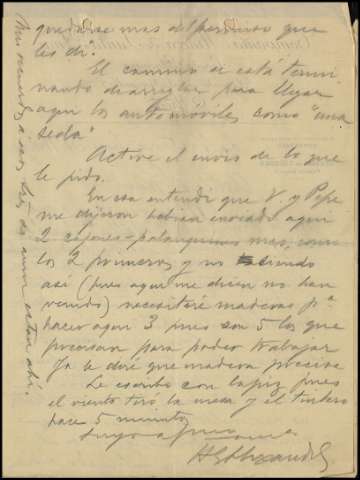 quedarse mas del permiso que
les di.
El camino se está termi
nando de arreglar para llegar
aqui los automóviles como "una
seda"
Active el envio de lo que
le pido.
En esa entendi que V. y Pepe
me dijeron habian enviado aqui
2 cajones-palanganas mas, como
los 2 primeros y no siendo
asi (pues aqui me dicen no han
venido) necesitaré maderas pª
hacer aqui 3 pues son 5 los que
precisan para poder trabajar
Ya le diré que madera precisa
Le escribo con lapiz pues
el viento tiró la mesa y el tintero
hace 5 minutos
Suyo afmo
Mis recuerdos a sus